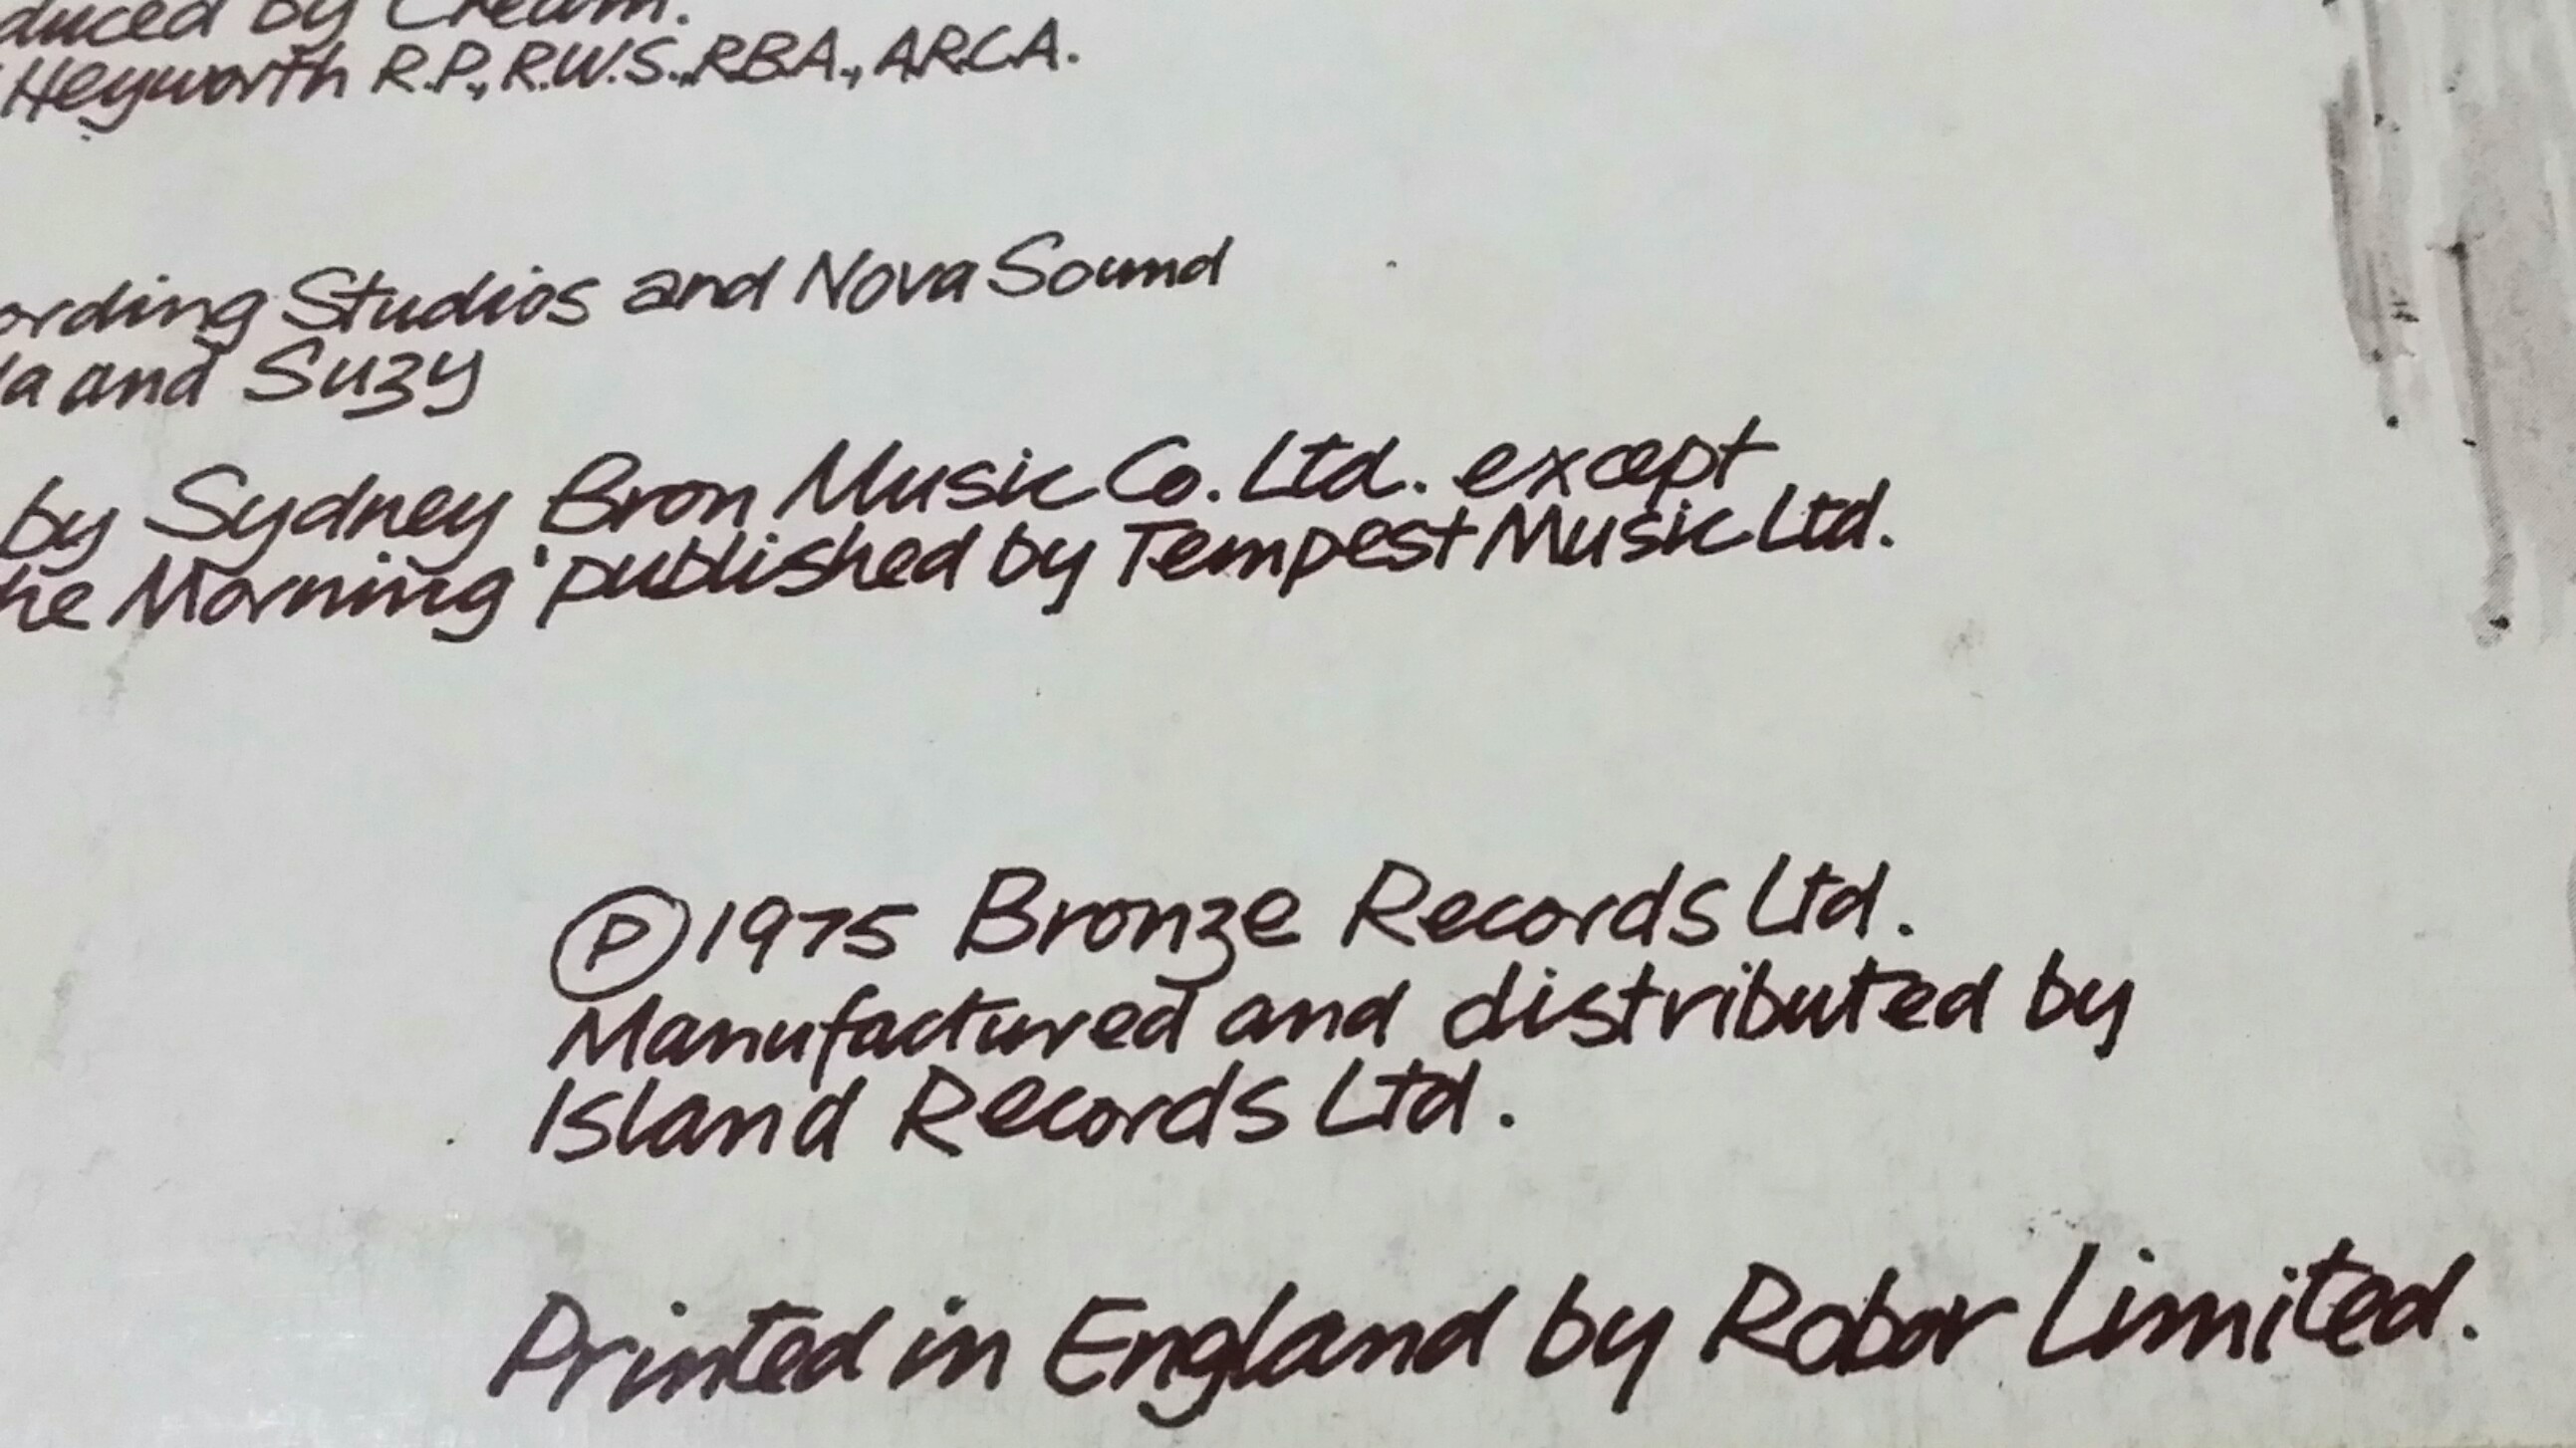 duced by Cream.
Heyworth R.P., R.W.S., R.B.A., A.R.C.A.
ording Studios and Nova Sound
la and Suzy
by Sydney Bron Music Co. Ltd. except
he Morning' published by Tempest Music Ltd.
Ⓟ 1975 Bronze Records Ltd.
Manufactured and distributed by
Island Records Ltd.
Printed in England by Robor Limited.